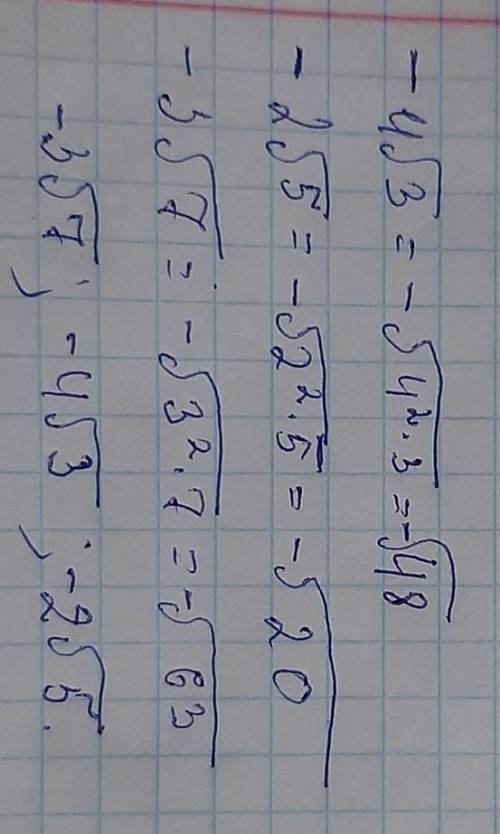 -4√3 = -√4²·3 = -√48
-2√5 = -√2²·5 = -√20
-3√7 = -√3²·7 = -√63
-3√7; -4√3; -2√5.